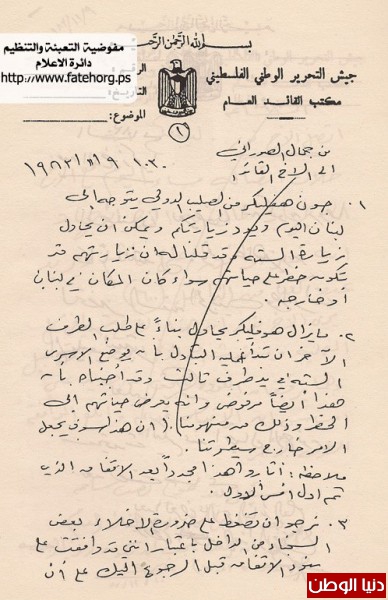 بسم الله الرحمن الرحيم
مفوضية التعبئة والتنظيم
دائرة الاعلام
http://www.fatehorg.ps
جيش التحرير الوطني الفلسطيني
مكتب القائد العام
الرقم:
التاريخ:
الموضوع:
(١)
من جمال الصوراني
الى الاخ القائد
١٠٣٠
١. جون هفليكر من الصليب الدولي يتوجه الى
لبنان اليوم ويود زيارتكم ويمكن ان يحاول
زيارة الستة وقد قلنا له ان زيارتهم قد
تكون خطر على حياتهم سواء كان المكان في لبنان
أو خارجه.
٢. ما يزال هوفليكر يحاول بناءً على طلب الطرف
الآخر ان تبدأ عملية التبادل بان يوضع الاسرى
الستة في يد طرف ثالث وقد أجبناه بان
هذا أيضاً مرفوض وانه يعرض حياتهم الى
الخطر وذلك من ان هذا سوف يجعل
الامر خارج سيطرتنا.
ملاحظة: أثاروا هذا مجدداً بعد الاتفاق الذي
تم اول امس الاول.
٣. نرجو ان تضغط على ضرورة الاخلاء بعض
السجناء من الداخل باعتبار انني قد وافقت على
بنود الاتفاق قبل الرجوع اليك على أن
دنيا الوطن